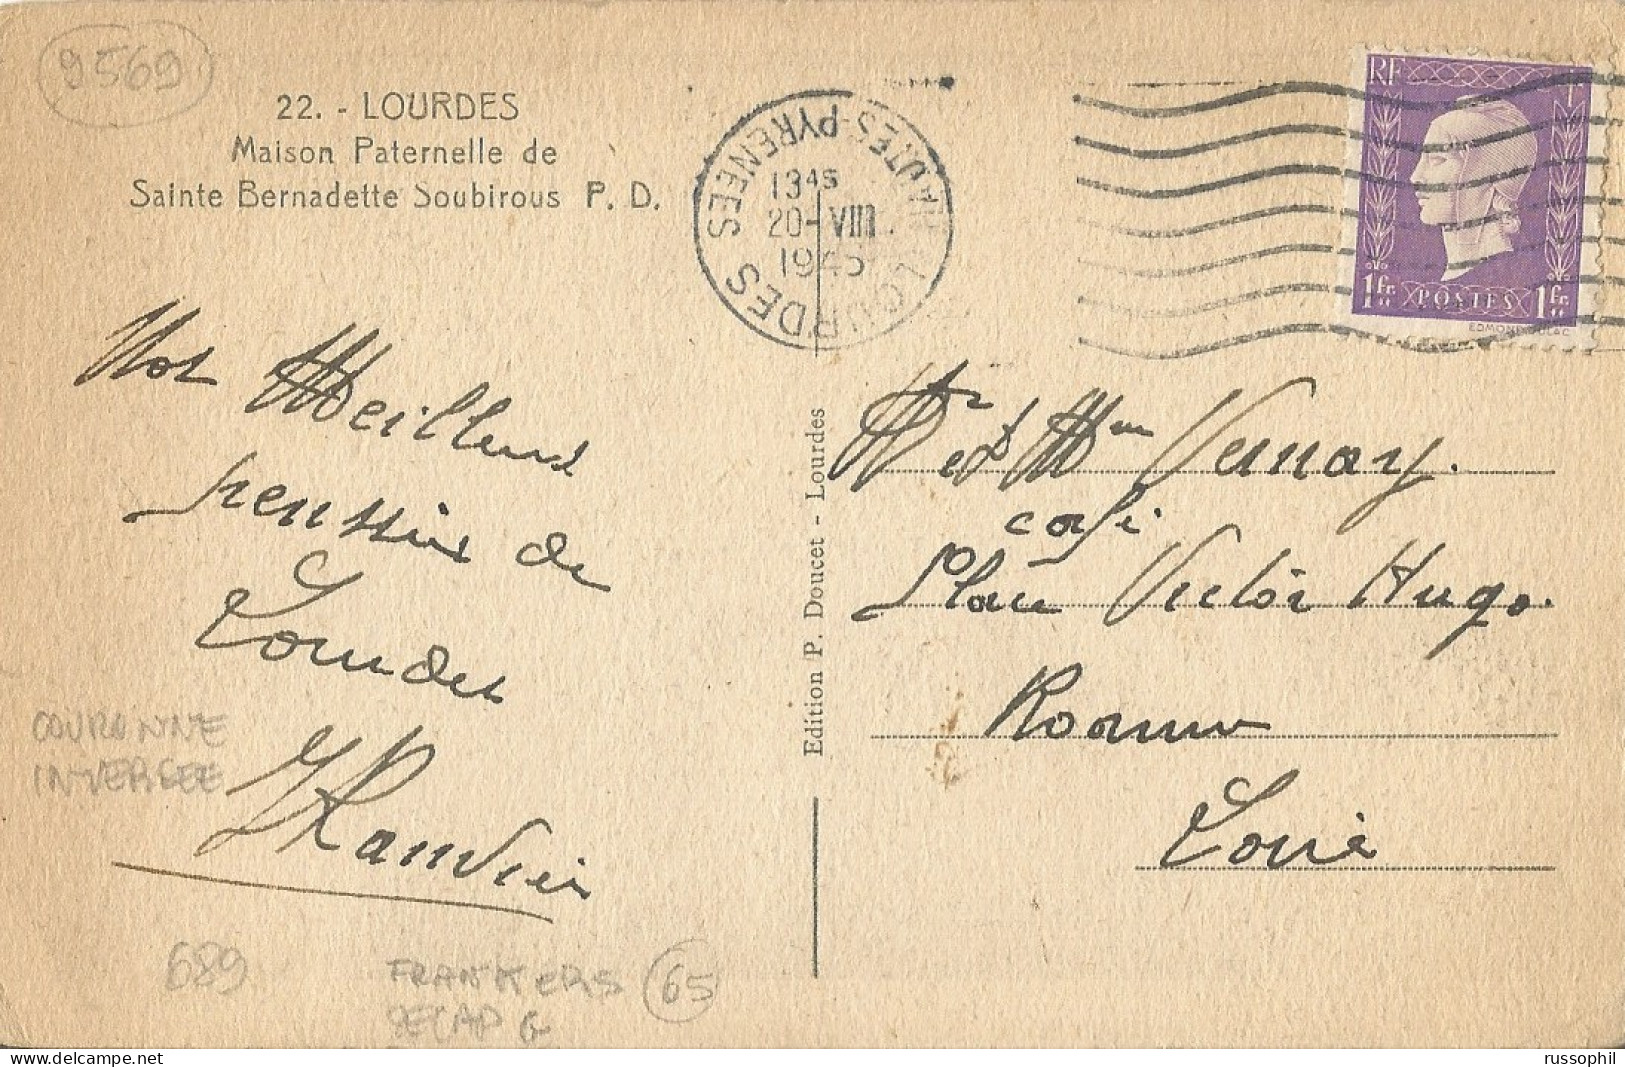 9569
22. - LOURDES
Maison Paternelle de
Sainte Bernadette Soubirous P. D.
LOURDES HAUTES-PYRENEES
13 45
20-VIII
1945
RF
1fr.
POSTES
1fr.
EDMOND DULAC
Nos Meilleurs
pensées de
Lourdes
COURONNE
INVERSEE
689
FRANKERS
SECAP G
65
Edition P. Doucet - Lourdes
Mr et Mme Vernay.
café
Place Victor Hugo.
Roanne
Loire
www.russophil